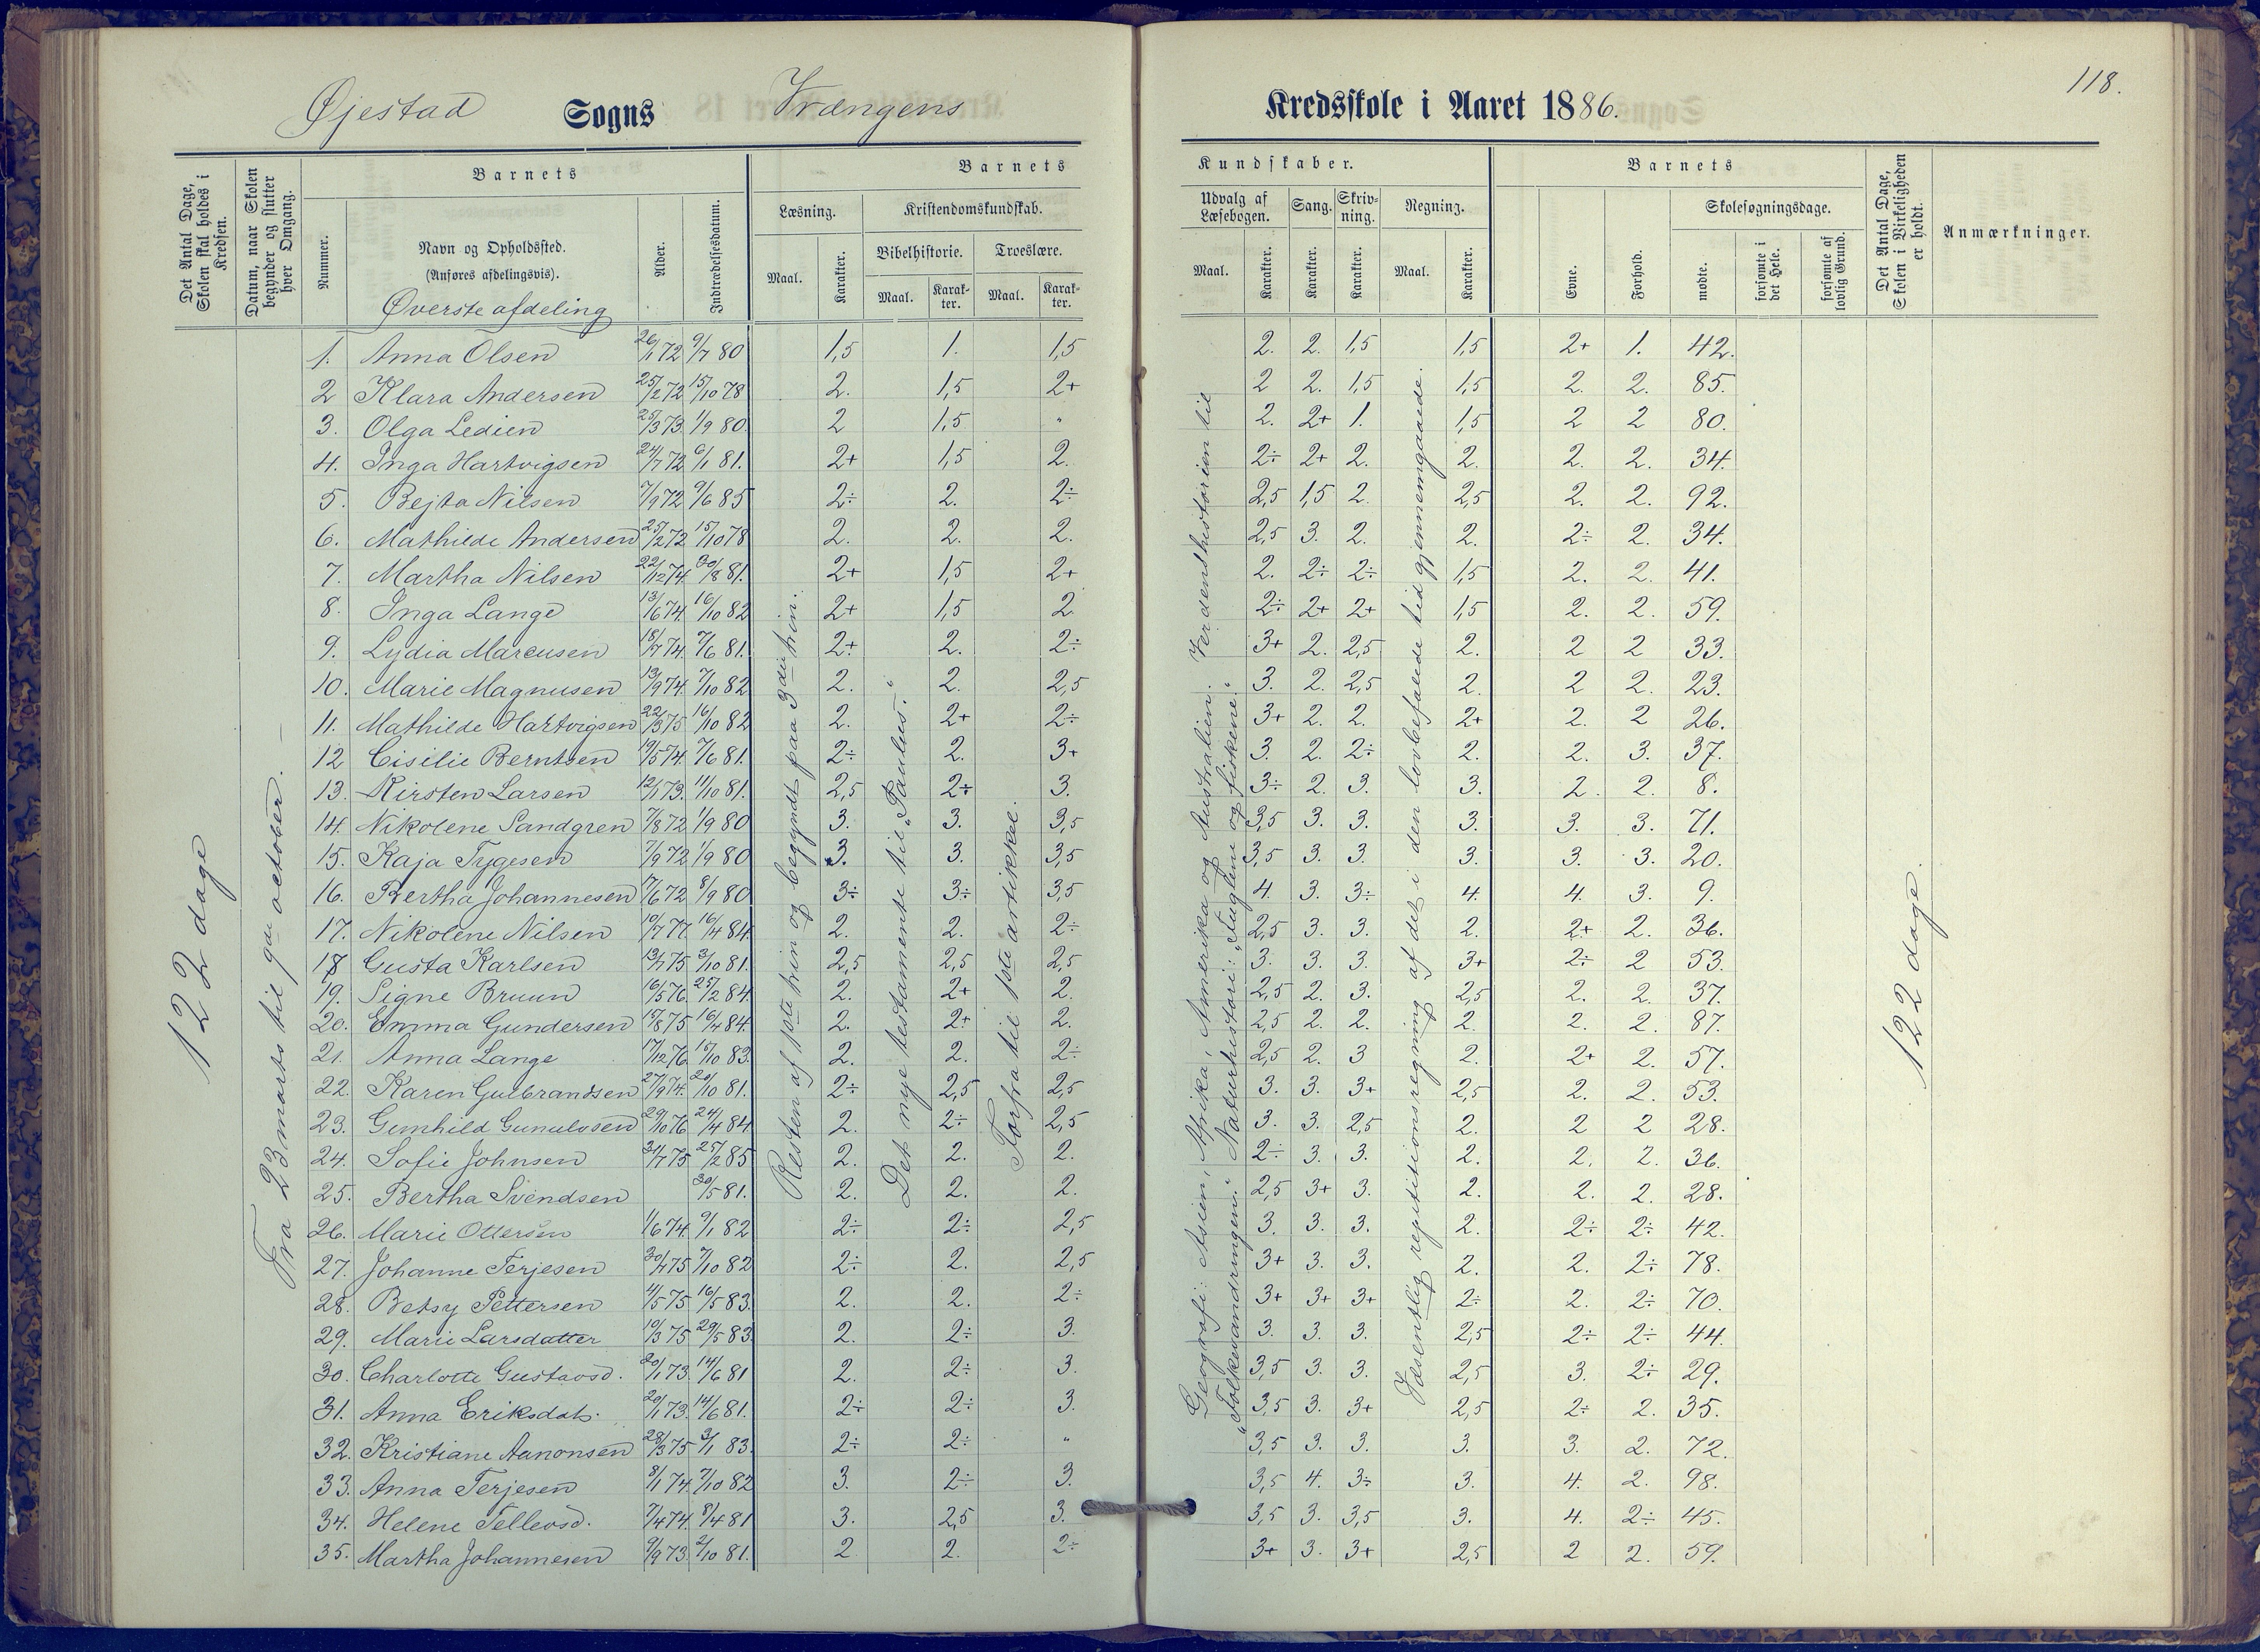 118.
Øjestad Sogns Vrængens Kredsskole i Aaret 1886.
Det Antal Dage, Skolen skal holdes i Kredsen.
Datum, naar Skolen begynder og slutter hver Omgang.
Barnets
Nummer.
Navn og Opholdssted.
(Anføres afdelingsvis).
Øverste afdeling
Alder.
Indtrædelsesdatum.
Barnets
Læsning.
Maal.
Karakter.
Kristendomskundskab.
Bibelhistorie.
Maal.
Karakter.
Troeslære.
Maal.
Karakter.
Kundskaber.
Udvalg af Læsebogen.
Maal.
Karakter.
Sang.
Karakter.
Skrivning.
Karakter.
Regning.
Maal.
Karakter.
Barnets
Evne.
Forhold.
Skolesøgningsdage.
mødte.
forsømte i det Hele.
forsømte af lovlig Grund.
Det Antal Dage, Skolen i Virkeligheden er holdt.
Anmærkninger.
122 dage
Fra 23 marts til 9de october. —
Resten af 1ste trin og begyndt paa 3die trin.
Det nye testamente til „Paulus."
Forfra til 1ste artikkel.
Geografi: Asien, Afrika, Amerika og Australien. Verdenshistorien til
„Folkevandringen." Naturhistori: „Fuglene og fiskene."
Væsentlig repititionsregning af det i den lovbefalede tid gjennemgaaede.
122 dage
1. Anna Olsen 26/1 72 9/7 80 1,5 1. 1,5 2. 2. 1,5 1,5 2+ 1. 42.
2 Klara Andersen 25/2 72 15/10 78 2. 1,5 2+ 2 2. 1,5 1,5 2. 2. 85.
3. Olga Ledien 25/3 73. 1/9 80. 2 1,5 " 2. 2+ 1. 1,5 2 2 80.
4. Inga Hartvigsen 24/7 72 6/1 81. 2+ 1,5 2. 2÷ 2+ 2. 2. 2. 2. 34.
5. Bejta Nilsen 7/9 72 9/6 85 2÷ 2. 2÷ 2,5 1,5 2. 2,5 2. 2. 92.
6. Mathilde Andersen 25/2 72 15/10 78 2. 2. 2. 2,5 3. 2. 2. 2÷ 2. 34.
7. Martha Nilsen 22/12 74. 30/8 81. 2+ 1,5 2+ 2. 2÷ 2÷ 1,5 2. 2. 41.
8. Inga Lange 13/6 74. 16/10 82 2+ 1,5 2. 2÷ 2+ 2+ 1,5 2. 2. 59.
9. Lydia Marcusen 18/7 74. 7/6 81. 2+ 2. 2÷ 3+ 2. 2,5 2. 2 2 33.
10. Marie Magnusen 13/9 74. 7/10 82 2. 2. 2,5 3. 2. 2,5 2. 2 2. 23.
11. Mathilde Hartvigsen 22/3 75 16/10 82 2. 2+ 2÷ 3+ 2. 2. 2+ 2. 2 26.
12 Cisilie Berntsen 19/5 74. 7/6 81. 2÷ 2. 3+ 3. 2. 2÷ 2. 2. 3. 37.
13. Kirsten Larsen 12/1 73. 11/10 81. 2,5 2÷ 3. 3÷ 2. 3. 3. 2. 2. 8.
14. Nikolene Sandgren 7/8 72 1/9 80 3. 3. 3,5 3,5 3. 3. 3. 3. 3. 71.
15. Kaja Tygesen 7/9 72 1/9 80 3. 3. 3,5 3,5 3. 3. 3. 3. 3. 20.
16. Bertha Johannesen 17/6 72 8/9 80 3÷ 3÷ 3,5 4. 3. 3÷ 4. 4. 3. 9.
17. Nikolene Nilsen 10/7 77. 16/4 84. 2. 2. 2÷ 2,5 3. 3. 2. 2+ 2. 36.
18 Gusta Karlsen 13/1 75 3/10 81. 2,5 2,5 2,5 3. 3. 3. 3+ 2÷ 2 53.
19. Signe Bruun 16/5 76. 25/2 84. 2. 2+ 2. 2,5 2. 3. 2,5 2. 2. 37.
20. Emma Gundersen 15/8 75 16/4 84. 2. 2+ 2. 2,5 2. 2. 2. 2. 2. 87.
21. Anna Lange 17/12 76. 15/10 83. 2. 2. 2÷ 2,5 2. 3 2. 2+ 2. 57.
22. Karen Gulbrandsen 27/9 74. 20/10 81. 2÷ 2,5 2,5 3. 3. 3+ 2,5 2. 2. 53.
23. Gunhild Gunulvsen 29/10 76 24/4 84 2. 2÷ 2,5 3. 3. 2,5 2. 2 2 28.
24. Sofie Johnsen 31/7 75 25/2 85 2. 2. 2. 2÷ 3. 3. 2. 2. 2. 36.
25. Bertha Svendsen 30/5 81. 2. 2. 2. 2,5 3+ 3. 2. 2. 2. 28.
26. Marie Ottersen 1/6 74. 9/1 82 2÷ 2÷ 2,5 3. 3. 3. 2. 2÷ 2÷ 42.
27. Johanne Terjesen 30/4 75 7/10 82 2÷ 2. 2,5 3+ 3. 3. 2. 2. 2÷ 78.
28. Betsy Pettersen 4/5 75 16/5 83. 2. 2. 2÷ 3+ 3+ 3+ 2÷ 2. 2÷ 70.
29. Marie Larsdatter 10/3 75 29/5 83. 2. 2÷ 3. 3. 3. 3. 2,5 2÷ 2÷ 44.
30. Charlotte Gustavsd. 20/1 73. 14/6 81 2. 2÷ 3. 3,5 3. 3. 2,5 3. 2÷ 29.
31. Anna Eriksdat. 20/1 73. 14/6 81. 2÷ 2÷ 3. 3,5 3. 3+ 2,5 2÷ 2. 35.
32. Kristiane Aanonsen 28/3 75 3/1 83. 2÷ 2÷ " 3,5 3. 3. 3. 3. 2. 72.
33. Anna Terjesen 8/1 74. 7/10 82 3. 2÷ 3. 3,5 4. 3÷ 3. 4. 2. 98.
34. Helene Tellevsd. 7/4 74. 8/4 81 3. 2,5 3. 3,5 3. 3,5 3. 4. 2÷ 45.
35. Martha Johannesen 9/9 73. 2/10 81. 2. 2. 2÷ 3+ 3. 3+ 2,5 2 2. 59.